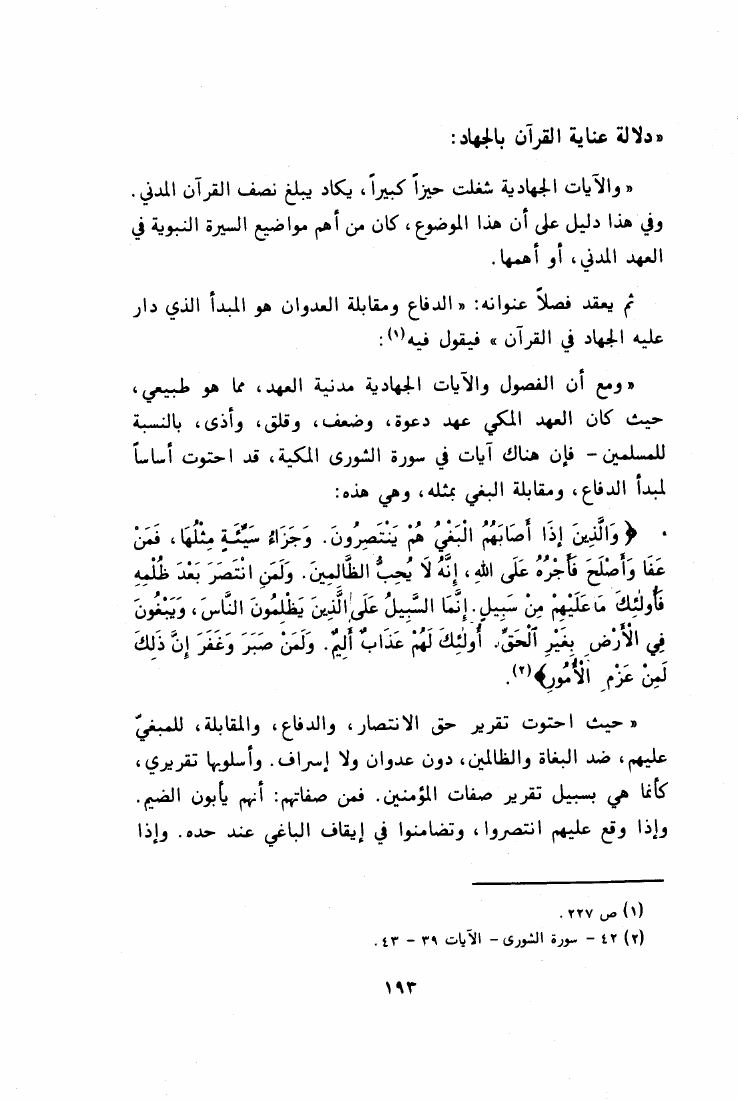 «دلالة عناية القرآن بالجهاد:
«والآيات الجهادية شغلت حيزاً كبيراً، يكاد يبلغ نصف القرآن المدني.
وفي هذا دليل على أن هذا الموضوع، كان من أهم مواضيع السيرة النبوية في
العهد المدني، أو أهمها.
ثم يعقد فصلاً عنوانه: «الدفاع ومقابلة العدوان هو المبدأ الذي دار
عليه الجهاد في القرآن» فيقول فيه(١):
«ومع أن الفصول والآيات الجهادية مدنية العهد، مما هو طبيعي،
حيث كان العهد المكي عهد دعوة، وضعف، وقلق، وأذى، بالنسبة
للمسلمين - فإن هناك آيات في سورة الشورى المكية، قد احتوت أساساً
لمبدأ الدفاع، ومقابلة البغي بمثله، وهي هذه:
﴿وَالَّذِينَ إِذَا أَصَابَهُمُ الْبَغْيُ هُمْ يَنْتَصِرُونَ. وَجَزَاءُ سَيِّئَةٍ مِثْلُهَا، فَمَنْ
عَفَا وَأَصْلَحَ فَأَجْرُهُ عَلَى اللهِ، إِنَّهُ لَا يُحِبُّ الظَّالِمِينَ. وَلَمَنِ انْتَصَرَ بَعْدَ ظُلْمِهِ
فَأُولَئِكَ مَا عَلَيْهِمْ مِنْ سَبِيلٍ. إِنَّمَا السَّبِيلُ عَلَى الَّذِينَ يَظْلِمُونَ النَّاسَ، وَيَبْغُونَ
فِي الْأَرْضِ بِغَيْرِ الْحَقِّ. أُولَئِكَ لَهُمْ عَذَابٌ أَلِيمٌ. وَلَمَنْ صَبَرَ وَغَفَرَ إِنَّ ذَلِكَ
لَمِنْ عَزْمِ الْأُمُورِ﴾(٢).
«حيث احتوت تقرير حق الانتصار، والدفاع، والمقابلة، للمبغيّ
عليهم، ضد البغاة والظالمين، دون عدوان ولا إسراف. وأسلوبها تقريري،
كأنما هي بسبيل تقرير صفات المؤمنين. فمن صفاتهم: أنهم يأبون الضيم.
وإذا وقع عليهم انتصروا، وتضامنوا في إيقاف الباغي عند حده. وإذا
(١) ص ٢٢٧.
(٢) ٤٢ - سورة الشورى - الآيات ٣٩ - ٤٣.
١٩٣